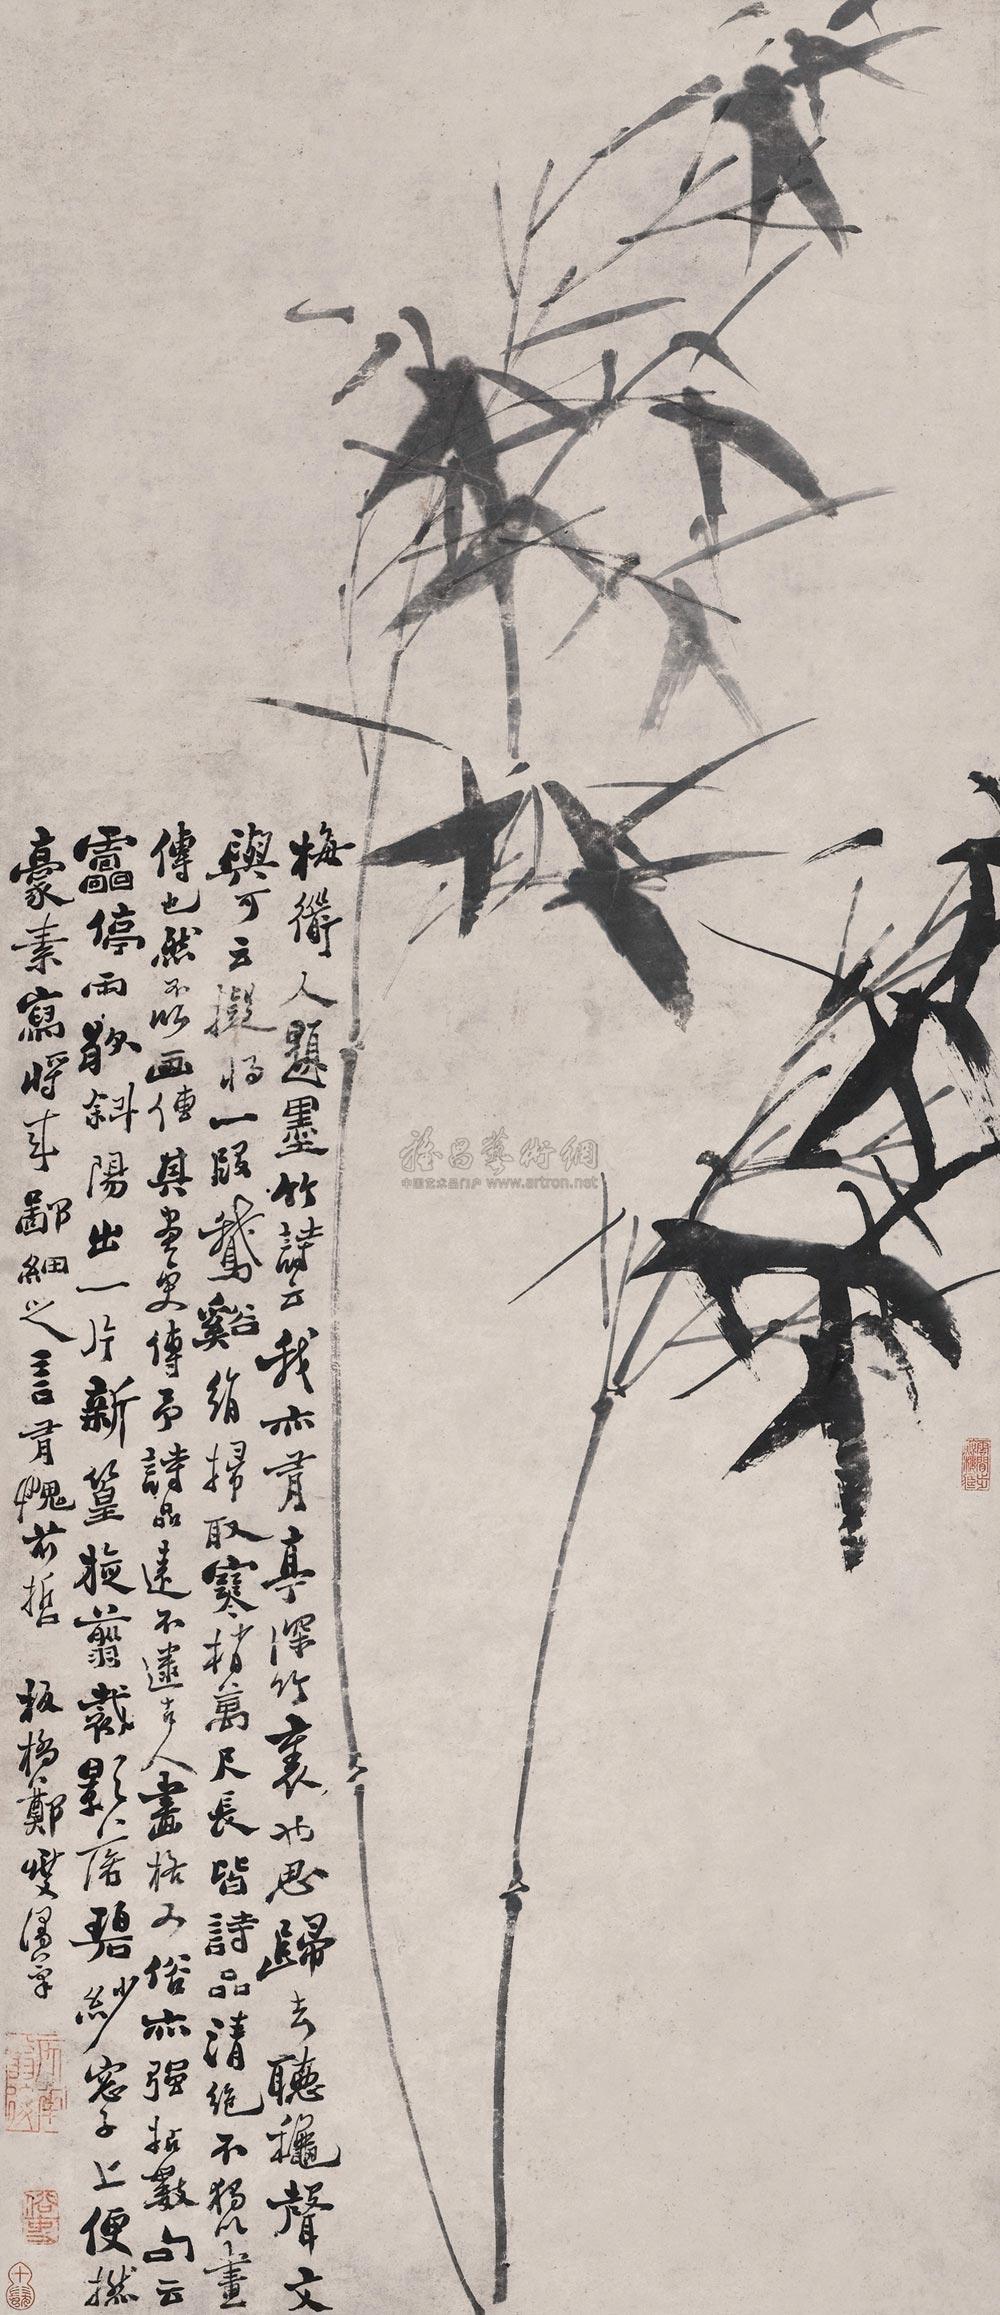 梅衟人題墨竹詩云我亦有亭深竹裏也思歸去聽穐聲文
與可云擬將一段鵞谿絹掃取寒梢萬尺長皆詩品清絶不獨以畫
傳也然不以画傳其畫更傳予詩品遠不逮古人畫格又俗亦强拈數句云
雷停雨歇斜陽出一片新篁旋翦裁影落碧紗窓子上便拈
豪素寫將來鄙細之言有愧前哲 板橋鄭燮漫筆
雅昌藝術網
中国艺术品门户 www.artron.net